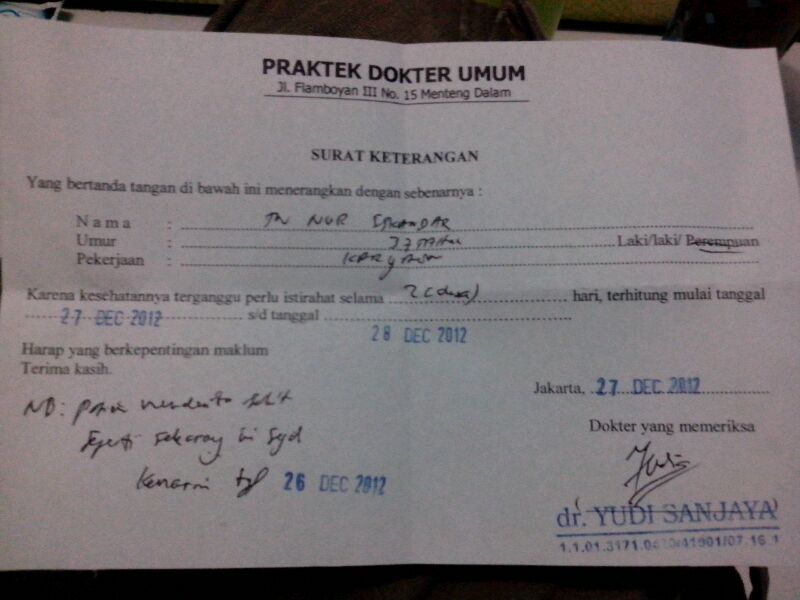 PRAKTEK DOKTER UMUM
Jl. Flamboyan III No. 15 Menteng Dalam
SURAT KETERANGAN
Yang bertanda tangan di bawah ini menerangkan dengan sebenarnya :
N a m a : TN NUR ISKANDAR
Umur : Laki/laki/ Perempuan
Pekerjaan :
Karena kesehatannya terganggu perlu istirahat selama 2 (dua) hari, terhitung mulai tanggal
27 DEC 2012 s/d tanggal
28 DEC 2012
Harap yang berkepentingan maklum
Terima kasih.
Jakarta, 27 DEC 2012
Dokter yang memeriksa
NB: sakit
seperti sekarang ini
kemarin tgl 26 DEC 2012
dr. YUDI SANJAYA